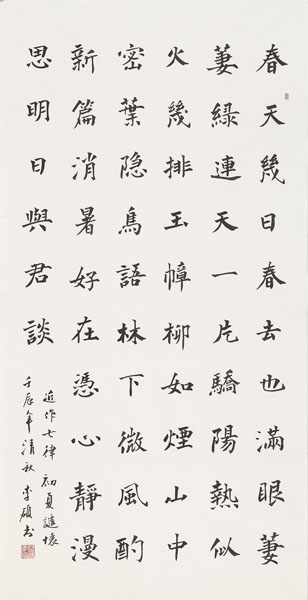 春天幾日春去也滿眼萋
萋綠連天一片驕陽熱似
火幾排玉幛柳如煙山中
密葉隐鳥語林下微風酌
新篇消暑好在憑心靜漫
思明日與君談
近作七律初夏謹懷
壬辰年清秋李頎書